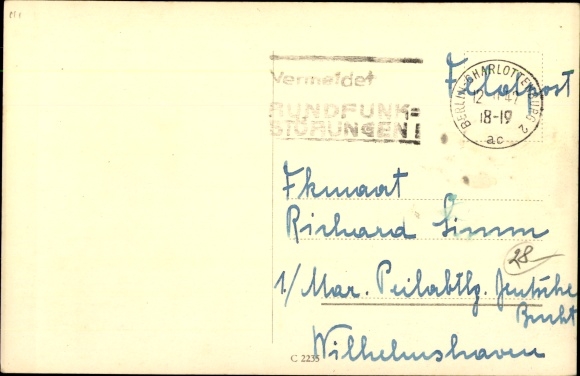 Vermeidet
RUNDFUNK-
STÖRUNGEN!
Feldpost
BERLIN-CHARLOTTENBURG 2
18-19
ac
Fkmaat
Richard Simm
28
1./ Mar. Peilabtlg. Deutsche
Bucht
Wilhelmshaven
C 2235